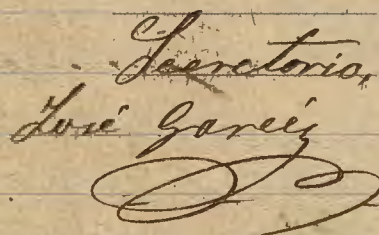 Secretorio,
José Garcéz